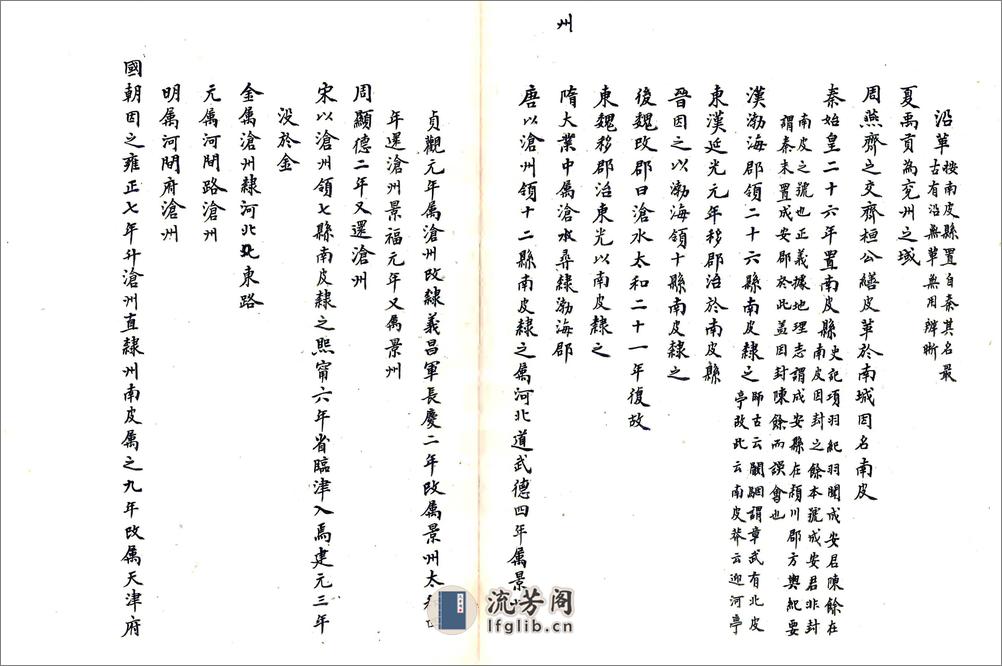 州
沿革 按南皮縣置自秦其名最
古有沿無革無用辨晰
夏禹貢為兗州之域
周燕齊之交齊桓公繕皮革於南城因名南皮
秦始皇二十六年置南皮縣 史記項羽紀羽聞成安君陳餘在
南皮因封之餘本號成安君非封
南皮之號也正義據地理志謂成安縣在潁川郡方輿紀要
謂秦末置成安郡於此蓋因封陳餘而誤會也
漢渤海郡領二十六縣南皮隸之 師古云闞駰謂章武有北皮
亭故此云南皮莽云迎河亭
東漢延光元年移郡治於南皮縣
晉因之以渤海領十縣南皮隸之
後魏改郡曰滄水太和二十一年復故
東魏移郡治東光以南皮隸之
隋大業中屬滄水尋隸渤海郡
唐以滄州領十二縣南皮隸之屬河北道武德四年屬景
貞觀元年屬滄州改隸義昌軍長慶二年改屬景州太
年還滄州景福元年又屬景州
周顯德二年又還滄州
宋以滄州領七縣南皮隸之熙甯六年省臨津入焉建元三年
沒於金
金屬滄州隸河北北東路
元屬河間路滄州
明屬河間府滄州
國朝因之雍正七年升滄州直隸州南皮屬之九年改屬天津府
流芳阁
lfglib.cn